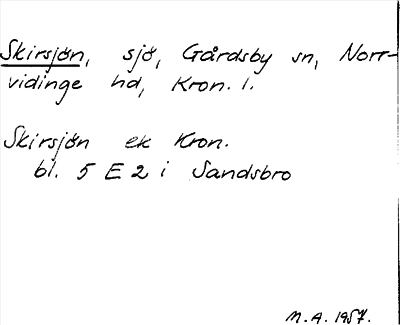 Skirsjön, sjö, Gårdsby sn, Norr-
vidinge hd, Kron. l.
Skirsjön ek Kron.
bl. 5 E 2 i Sandsbro
M. A. 1957.